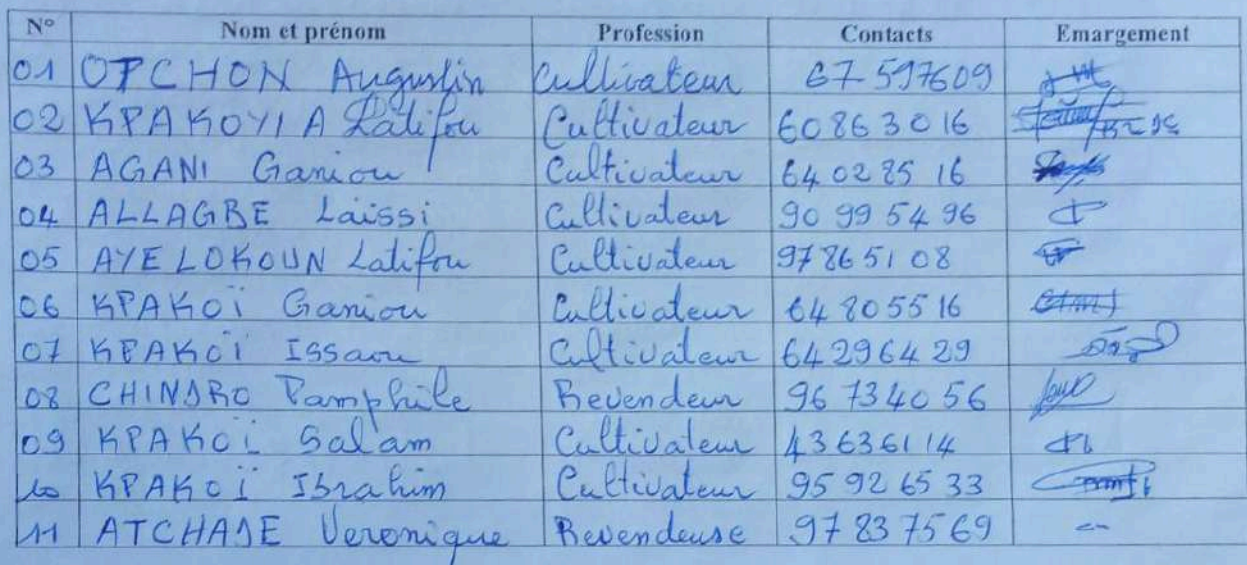 N° Nom et prénom Profession Contacts Emargement
01 OTCHON Augustin Cultivateur 67 597609
02 KPAKOYI A Latifou Cultivateur 60 86 30 16
03 AGANI Ganiou Cultivateur 64 02 85 16
04 ALLAGBE Laïssi Cultivateur 90 99 54 96
05 AYELOKOUN Latifou Cultivateur 97 86 51 08
06 KPAKOÏ Ganiou Cultivateur 64 80 55 16
07 KPAKOÏ Issaou Cultivateur 64 29 64 29
08 Pamphile Revendeur 96 73 40 56
09 KPAKOÏ Salam Cultivateur 43 63 61 14
10 KPAKOÏ Ibrahim Cultivateur 95 92 65 33
11 ATCHADE Veronique Revendeuse 97 83 75 69